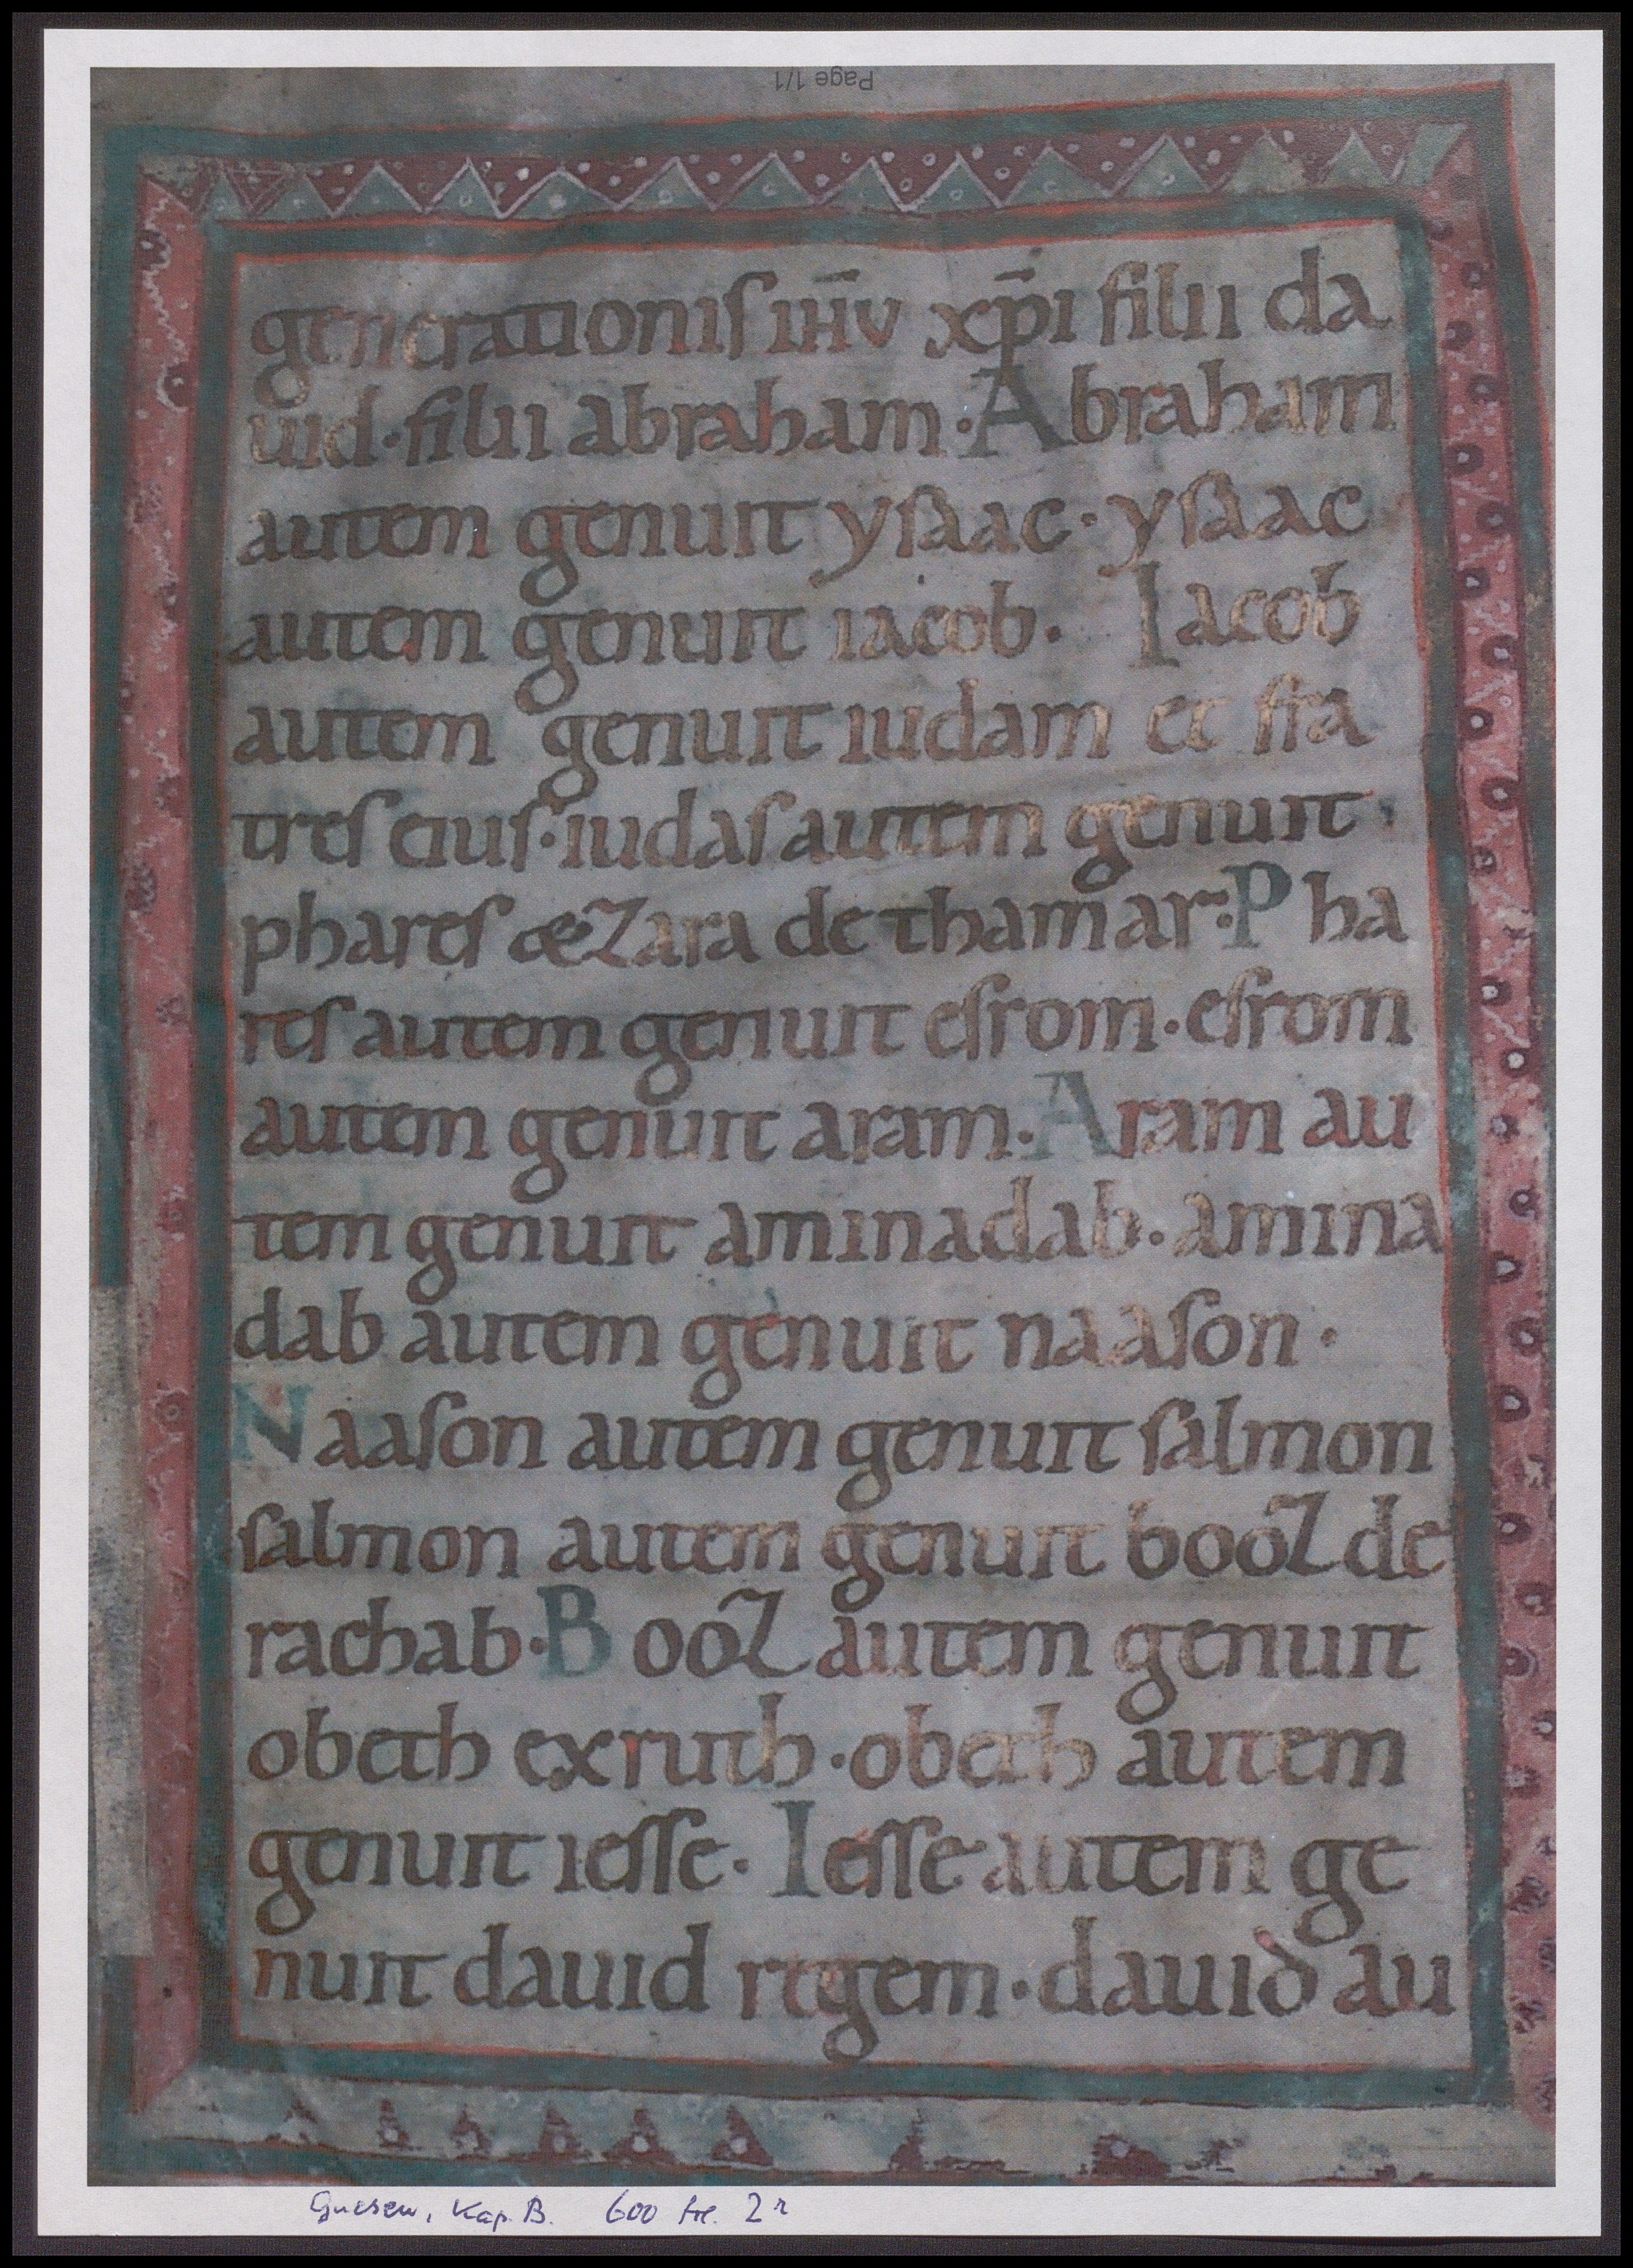 Page 1/1
generationis ihv̅ xp̅i filii da
uid · filii abraham · Abraham
autem genuit ysaac · ysaac
autem genuit iacob · Iacob
autem genuit iudam et fra
tres eius · iudas autem genuit
phares & zara de thamar · Pha
res autem genuit esrom · esrom
autem genuit aram · Aram au
tem genuit aminadab · amina
dab autem genuit naason ·
Naason autem genuit salmon
salmon autem genuit booz de
rachab · Booz autem genuit
obeth ex ruth · obeth autem
genuit iesse · Iesse autem ge
nuit dauid regem · dauid au
Gnesen, Kap. B. 600 2r